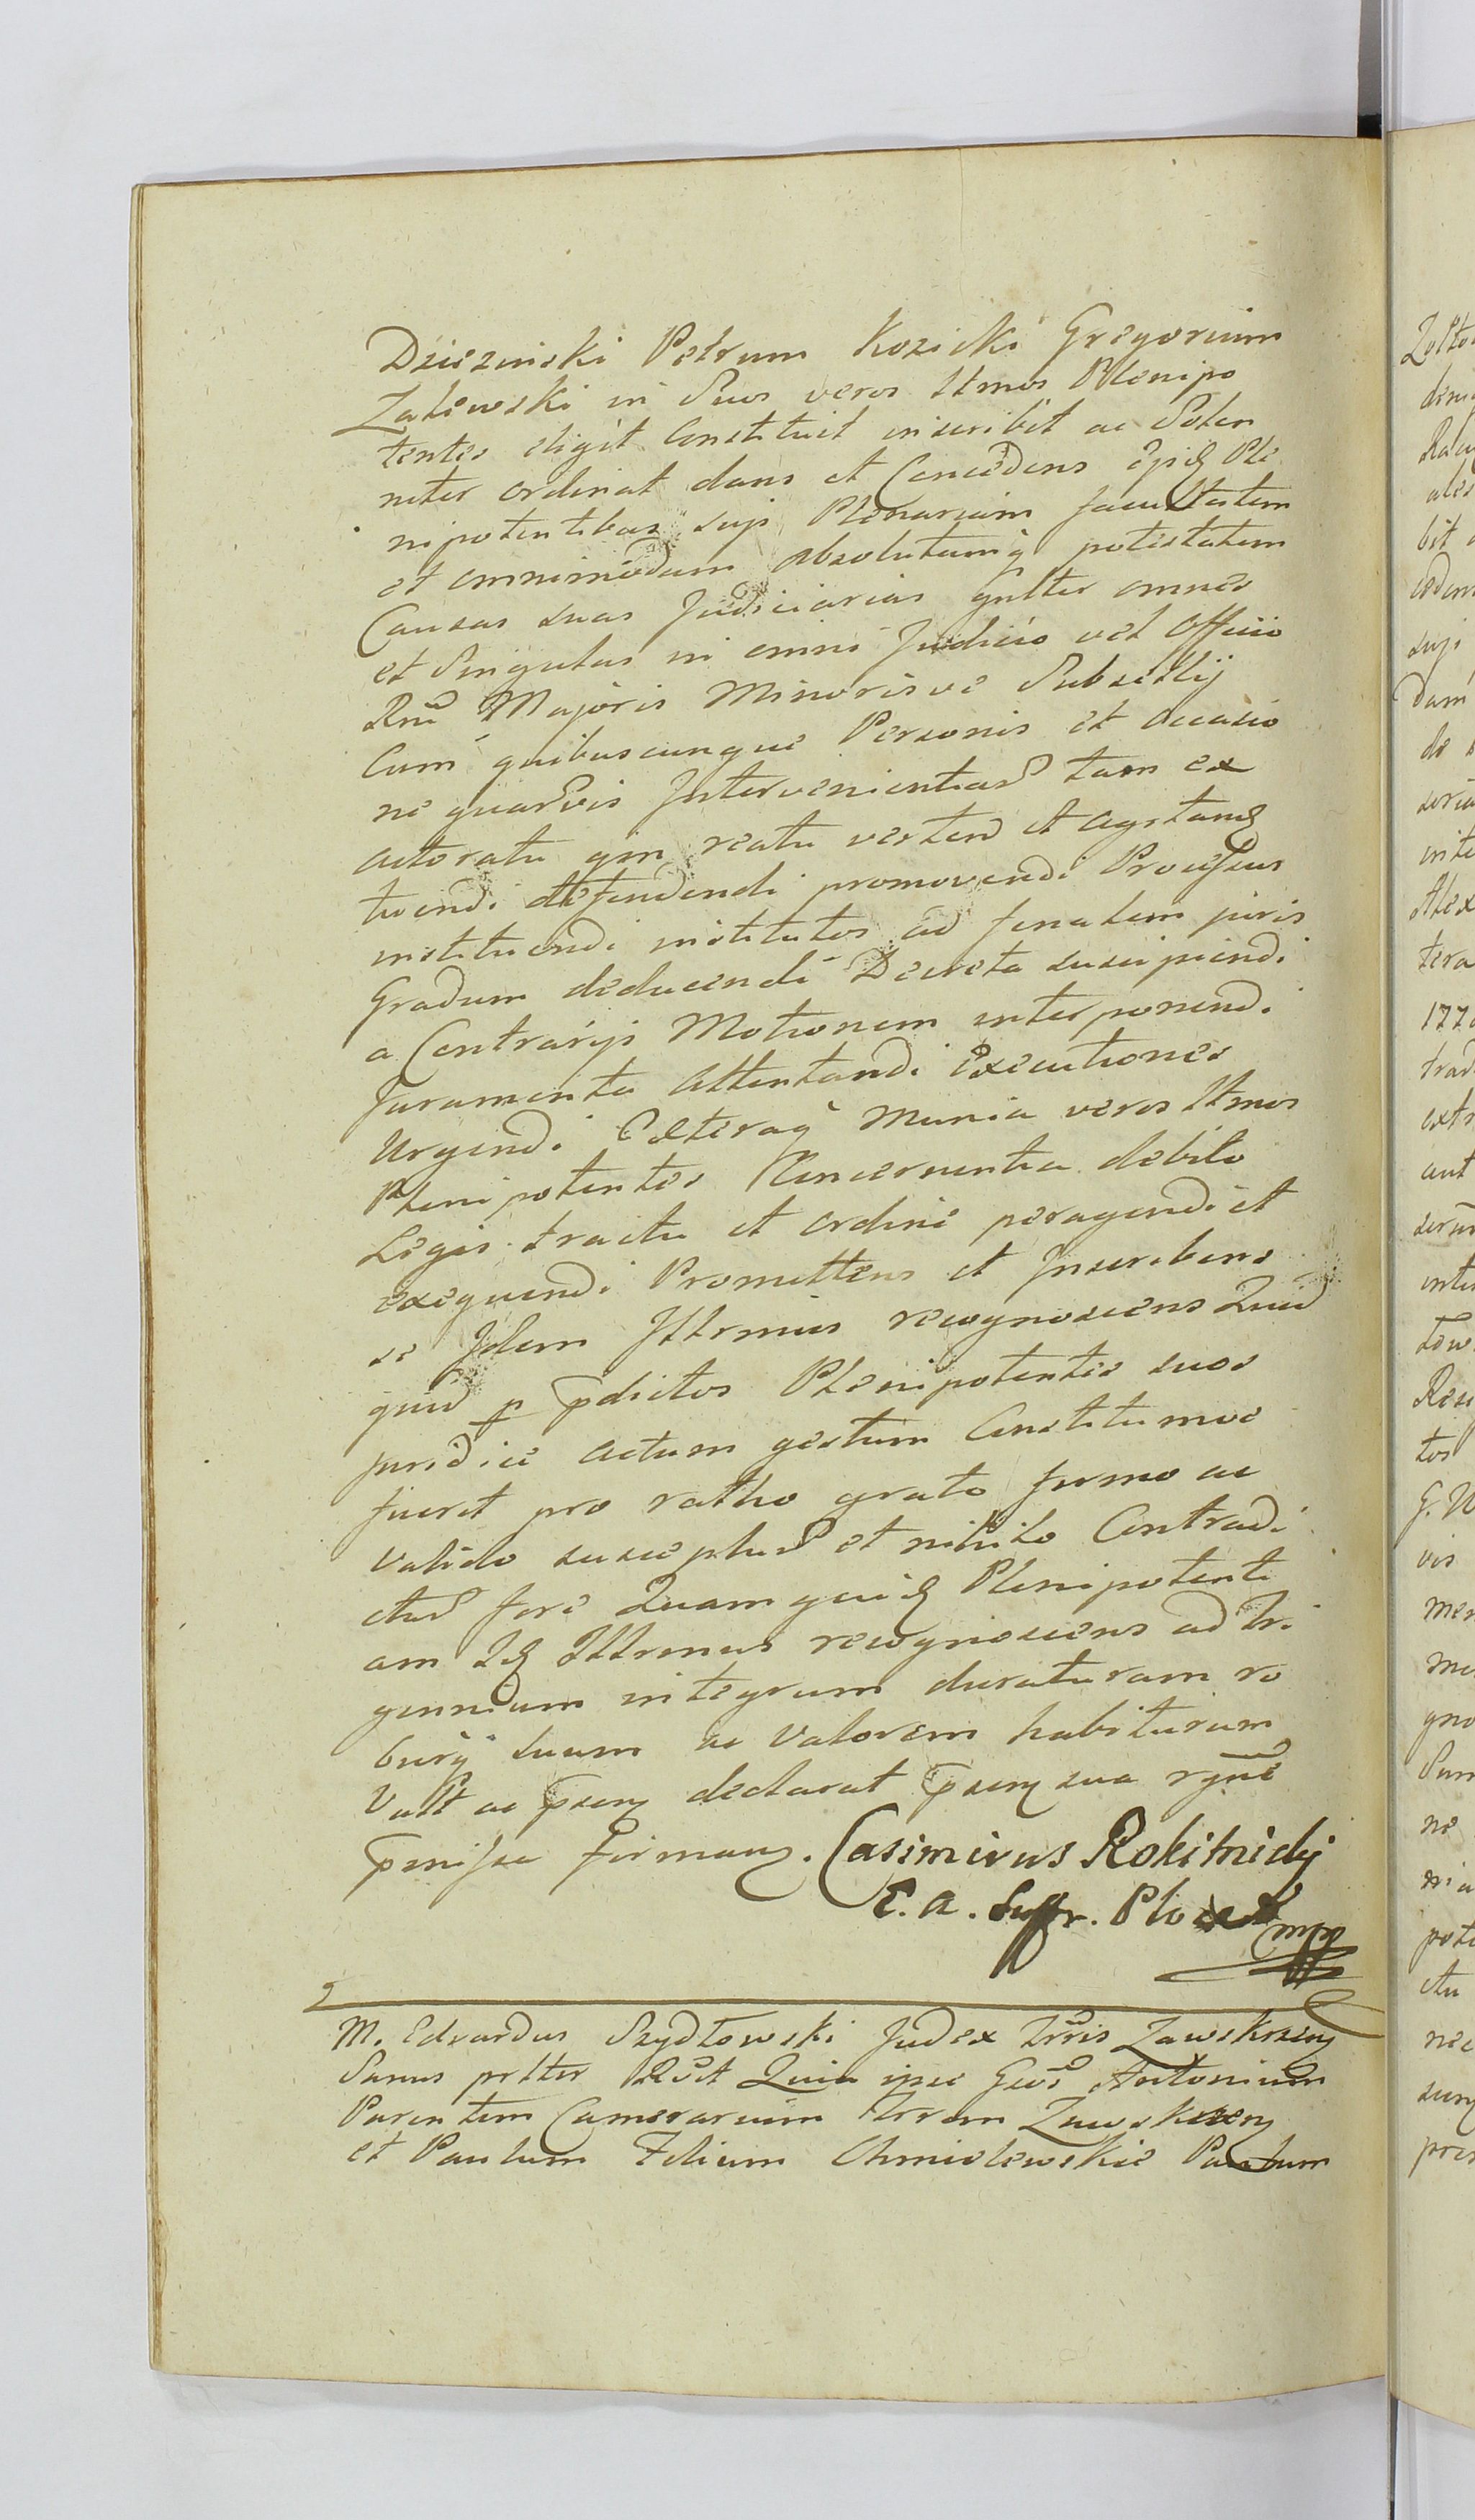 Dziezinski Petrum Kozicki Gregorium
Zalewski in Suos veros Ltmos Plenipo
tentes eligit Constituit inscribit ac Solen
niter ordinat dans et Concedens Ple
nipotentibus suis Plenariam facultatem
et omnimodam absolutamq potestatem
Causas suas Judiciarias gnlter omnes
et Singulas in omni Judicio vel Officio
Rni Majoris Minorisve Subsellij
Cum quibuscunque Personis et Occasio
ne quarvis Intervenientiad tam ex
actoratu qm reatu vertend et agitand
tuendi defendendi promovendi Processus
instituendi institutos ad finalem juris
Gradum deducendi Decreta suscipiendi
a Contrarijs Motionem interponendi
Juramenta Attentandi Executiones
Urgendi Coeteraq Munia veros Ltmos
Plenipotentes Concernentia debito
Legis tractu et ordine peragendi et
exequendi Promittens et Inscribens
se Idem Illrmus recognoscens Quid
quid p pdictos Plenipotentes suos
juridice actum gestum Constitumve
fuerit pro ratho grato firmo ac
valido suscepturd et nihilo Contradi
cturd fore Quam quid Plenipotenti
am Id Illrmus recognoscens ad tri
gennium integrum duraturam ro
burq suum ac Valorem habituram
Vult ac psenq declarat psenq sua
pmissa firmanq. Casimirus Rokitnicki
E. A. Suffr. Plocen mp
M. Edvardus Szydłowski Judex trris Zawskrzeq
Sanus prltr Rct Quia ipse Gsos Antonium
Parentem Camerarium trrem Zawskrzeq
et Paulum Filium Chmielewskie Paulum